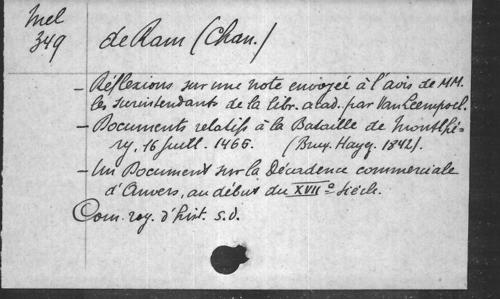 Mel
349
de Ram (Chan.)
- Réflexions sur une note envoyée à l'avis de MM.
les surintendants de la libr. acad. par Van Leempoel.
- Documents relatifs à la Bataille de Montlhé-
ry, 16 juill. 1466. (Brux. Hayq. 1842).
- Un Document sur la Décadence commerciale
d'Anvers, au début du XVIIe siècle.
Com. roy. d'hist. s.d.